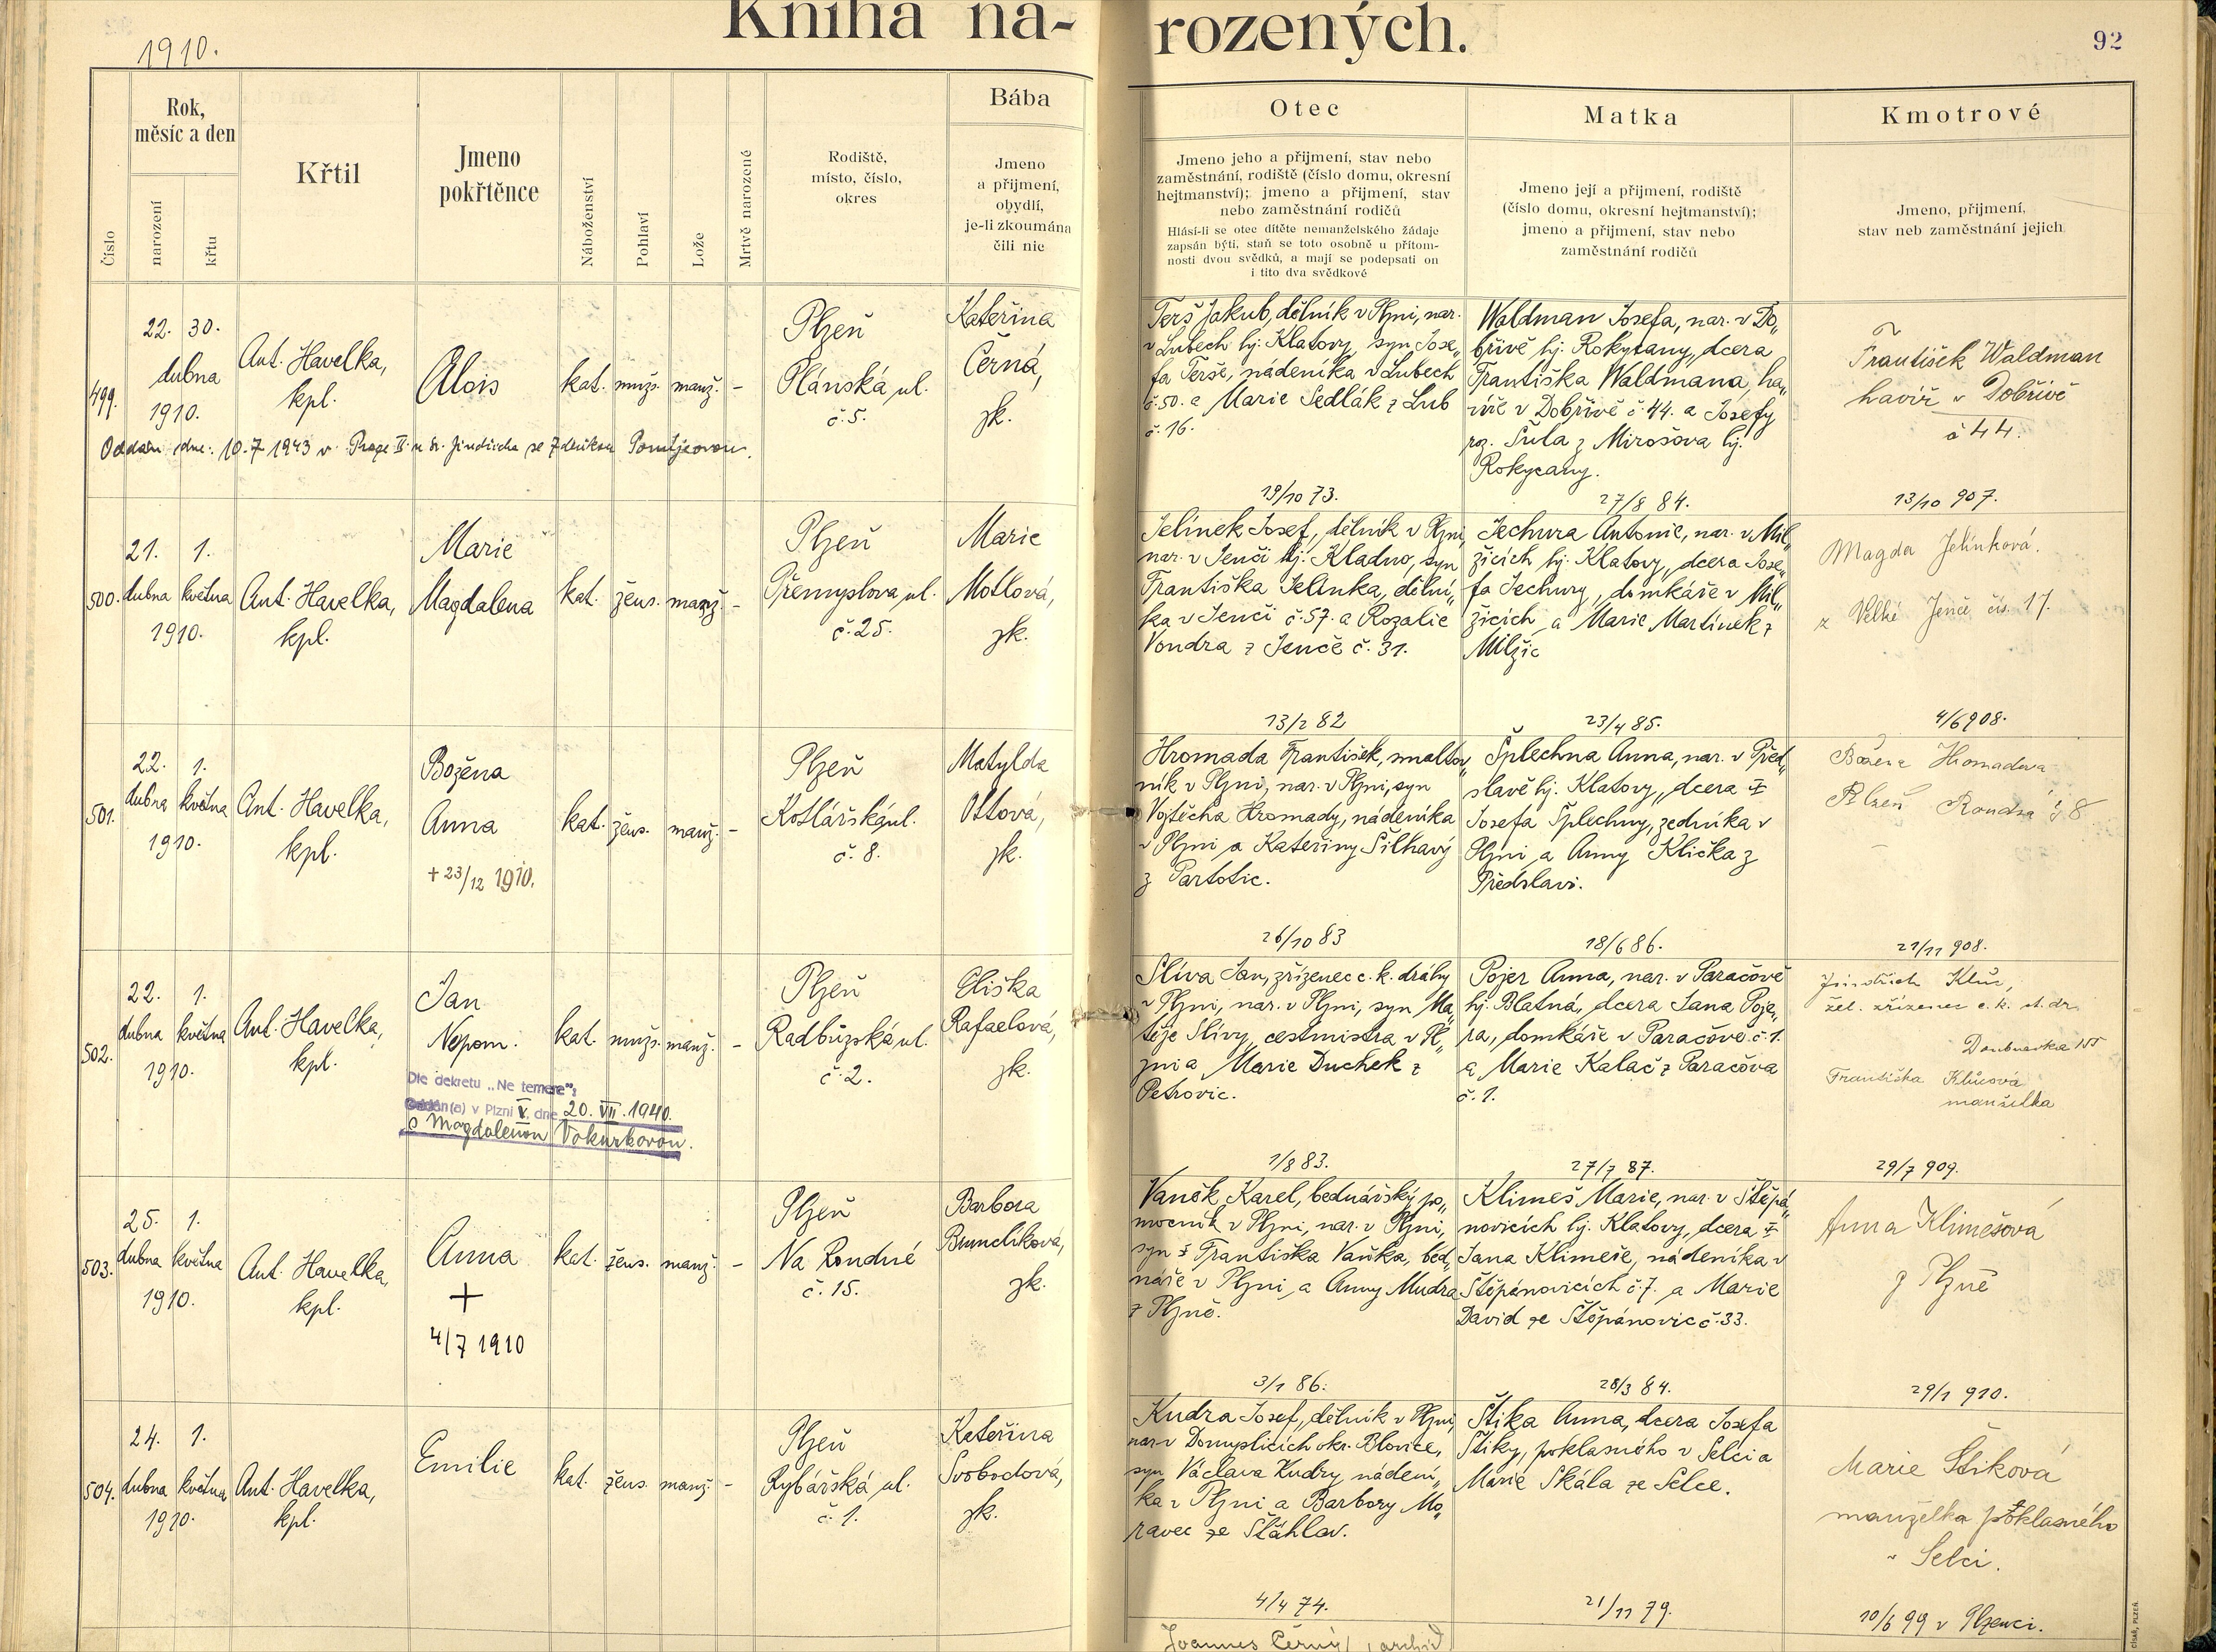 Kniha na-
rozených.
92
1910.
Číslo
Rok,
měsíc a den
narození
křtu
Křtil
Jmeno
pokřtěnce
Náboženství
Pohlaví
Lože
Mrtvě narozené
Rodiště,
místo, číslo,
okres
Bába
Jmeno
a přijmení,
obydlí,
je-li zkoumána
čili nic
Otec
Jmeno jeho a přijmení, stav nebo
zaměstnání, rodiště (číslo domu, okresní
hejtmanství); jmeno a přijmení, stav
nebo zaměstnání rodičů
Hlásí-li se otec dítěte nemanželského žádaje
zapsán býti, staň se toto osobně u přítom-
nosti dvou svědků, a mají se podepsati on
i tito dva svědkové
Matka
Jmeno její a přijmení, rodiště
(číslo domu, okresní hejtmanství);
jmeno a přijmení, stav nebo
zaměstnání rodičů
Kmotrové
Jmeno, přijmení,
stav neb zaměstnání jejich
499.
22. 30.
dubna
1910.
Ant. Havelka,
kpl.
Alois
kat. mužs. manž. -
Plzeň
Plánská ul.
č. 5.
Kateřina
Černá,
zk.
Oddán dne: 10.7 1943 v Praze II u sv. Jindřicha se Zdeňkou
Terš Jakub, dělník v Plzni, nar.
v Lubech hj. Klatovy, syn Jose„
fa Terše, nádeníka v Lubech
č. 50. a Marie Sedlák z Lub
č. 16.
19/10 73.
Waldman Josefa, nar. v Do„
břívě hj. Rokycany, dcera
Františka Waldmana, ha„
víře v Dobřívě č. 44. a Josefy
roz. Šula z Mirošova hj.
Rokycany.
27/8 84.
František Waldman
havíř v Dobřívě
č 44.
13/10 907.
500.
21. 1.
dubna května
1910.
Ant. Havelka,
kpl.
Marie
Magdalena
kat. žens. manž. -
Plzeň
Přemyslova ul.
č. 25.
Marie
Motlová,
zk.
Jelínek Josef, dělník v Plzni,
nar. v Jenči hj. Kladno, syn
Františka Jelínka, dělní„
ka v Jenči č. 57. a Rozalie
Vondra z Jenče č. 31.
13/2 82
Jechura Antonie, nar. v Mil„
žicích hj. Klatovy, dcera Jose„
fa Jechury, domkáře v Mil„
žicích a Marie Martínek z
Milžic
23/4 85.
Magda Jelínková.
z Velké Jenče čís. 17.
4/6 908.
501.
22. 1.
dubna května
1910.
Ant. Havelka,
kpl.
Božena
Anna
+ 23/12 1910.
kat. žens. manž. -
Plzeň
Kotlářská ul.
č. 8.
Matylda
Ottová,
zk.
Hromada František, smaltov„
ník v Plzni, nar. v Plzni, syn
Vojtěcha Hromady, nádeníka
v Plzni a Kateřiny Šilhavý
z Partotic.
26/10 83
Šplechna Anna, nar. v Před„
slavě hj. Klatovy, dcera
Josefa Šplechny, zedníka v
Plzni a Anny Klička z
Předslavi.
18/6 86.
Božena Hromadova
Plzeň Rondná č 8
21/11 908.
502.
22. 1.
dubna května
1910.
Ant. Havelka,
kpl.
Jan
Nepom.
kat. mužs. manž. -
Dle dekretu „Ne temere":
Oddán(a) v Plzni V, dne 20. VII. 1940.
s Magdalenou Vokurkovou.
Plzeň
Radbuzská ul.
č. 2.
Eliška
Rafaelová,
zk.
Slíva Jan, zřízenec c. k. dráhy
v Plzni, nar. v Plzni, syn Ma„
těje Slívy, cestmistra v Pl„
zni a Marie Duchek z
Petrovic.
1/8 83.
Pojer Anna, nar. v Paračově
hj. Blatná, dcera Jana Poje„
ra, domkáře v Paračově č. 1.
a Marie Kalač z Paračova
č. 1.
27/7 87.
Jindřich Klůc,
žel. zřízenec c. k. st. dr.
Doubravka 155
Františka Klůcová
manželka
29/7 909.
503.
25. 1.
dubna května
1910.
Ant. Havelka,
kpl.
Anna
+
4/7 1910
kat. žens. manž. -
Plzeň
Na Rondně
č. 15.
Barbora
Brunclíková,
zk.
Vaněk Karel, bednářský po„
mocník v Plzni, nar. v Plzni,
syn Františka Vaňka, bed„
náře v Plzni a Anny Mudra
z Plzně.
3/1 86.
Klimeš Marie, nar. v Štěpá„
novicích hj. Klatovy, dcera
Jana Klimeše, nádeníka v
Štěpánovicích č. 7. a Marie
David ze Štěpánovic č. 33.
28/3 84.
Anna Klimešová
z Plzně
29/1 910.
504.
24. 1.
dubna května
1910.
Ant. Havelka,
kpl.
Emilie
kat. žens. manž. -
Plzeň
Rybářská ul.
č. 1.
Kateřina
Svobodová,
zk.
Kudra Josef, dělník v Plzni,
nar. v Domyslicích okr. Blovice,
syn Václava Kudry, nádení„
ka v Plzni a Barbory Mo„
ravec ze Šťáhlav.
4/4 74.
Štika Anna, dcera Josefa
Štiky, poklasného v Selci a
Marie Skála ze Selce.
21/11 79.
Marie Štiková
manželka poklasného
v Selci.
10/6 99 v Plzenci.
Joannes Černý,
CÍSAŘ, PLZEŇ.